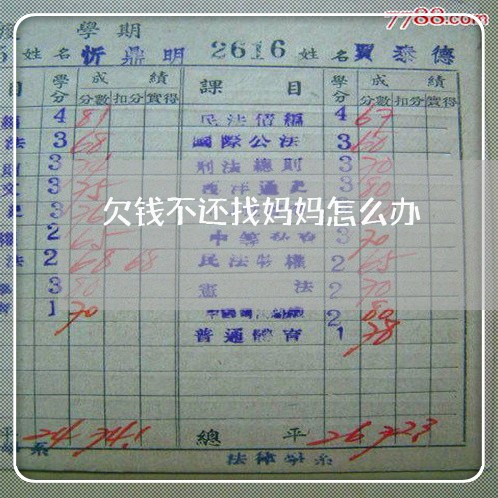 7788.com
學期
5 姓名 忻鼎明 2616 姓名 賈泰德
目 學分 成績 課目 學分 成績
分數 扣分 實得 分數 扣分 實得
4 81 民法債編 4 67
法 3 68 國際公法 3 60
3 刑法總則 3 70
文 3 75 西洋通史 3 80
欠钱不还找妈妈怎么办
權 2 65 3 70
法 2 68 68 民法物權 2 65
3 80 憲法 2 70
1 70 2 80
普通體育 1 78
平 24 74.1 總平 26 72.3
系 法律學系